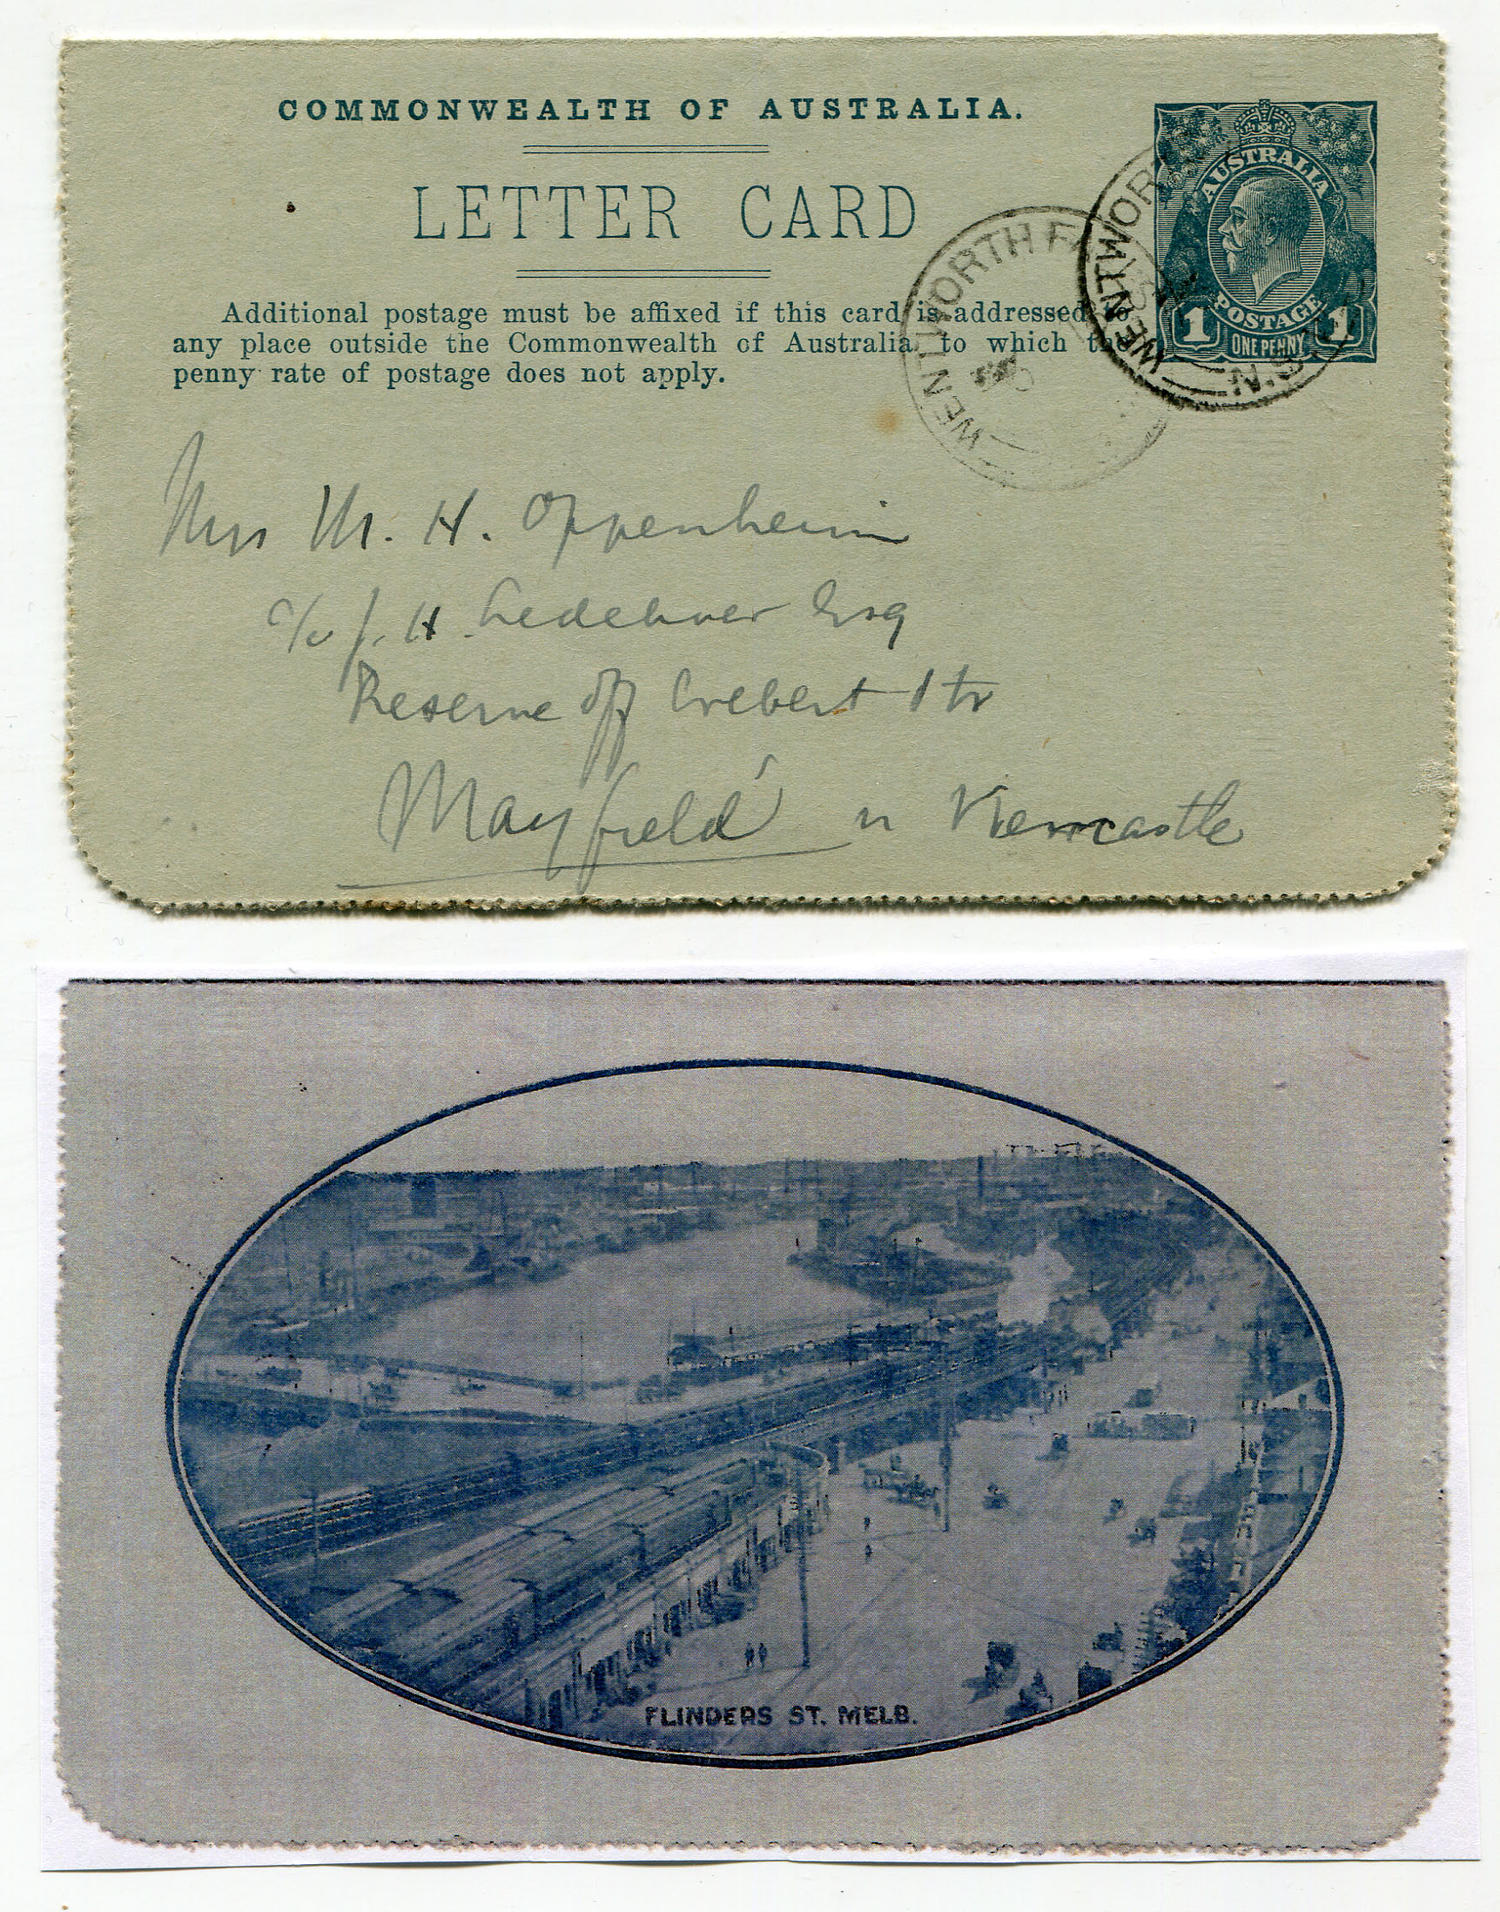 COMMONWEALTH OF AUSTRALIA.
LETTER CARD
Additional postage must be affixed if this card is addressed to
any place outside the Commonwealth of Australia to which the
penny rate of postage does not apply.
AUSTRALIA
POSTAGE
1 ONE PENNY 1
WENTWORTH FA
WENTWORTH
N.S.
Mrs M. H. Oppenheim
c/o J. H. Ledebuer Esq
Reserve off Crebert Str
Mayfield n Newcastle
FLINDERS ST. MELB.